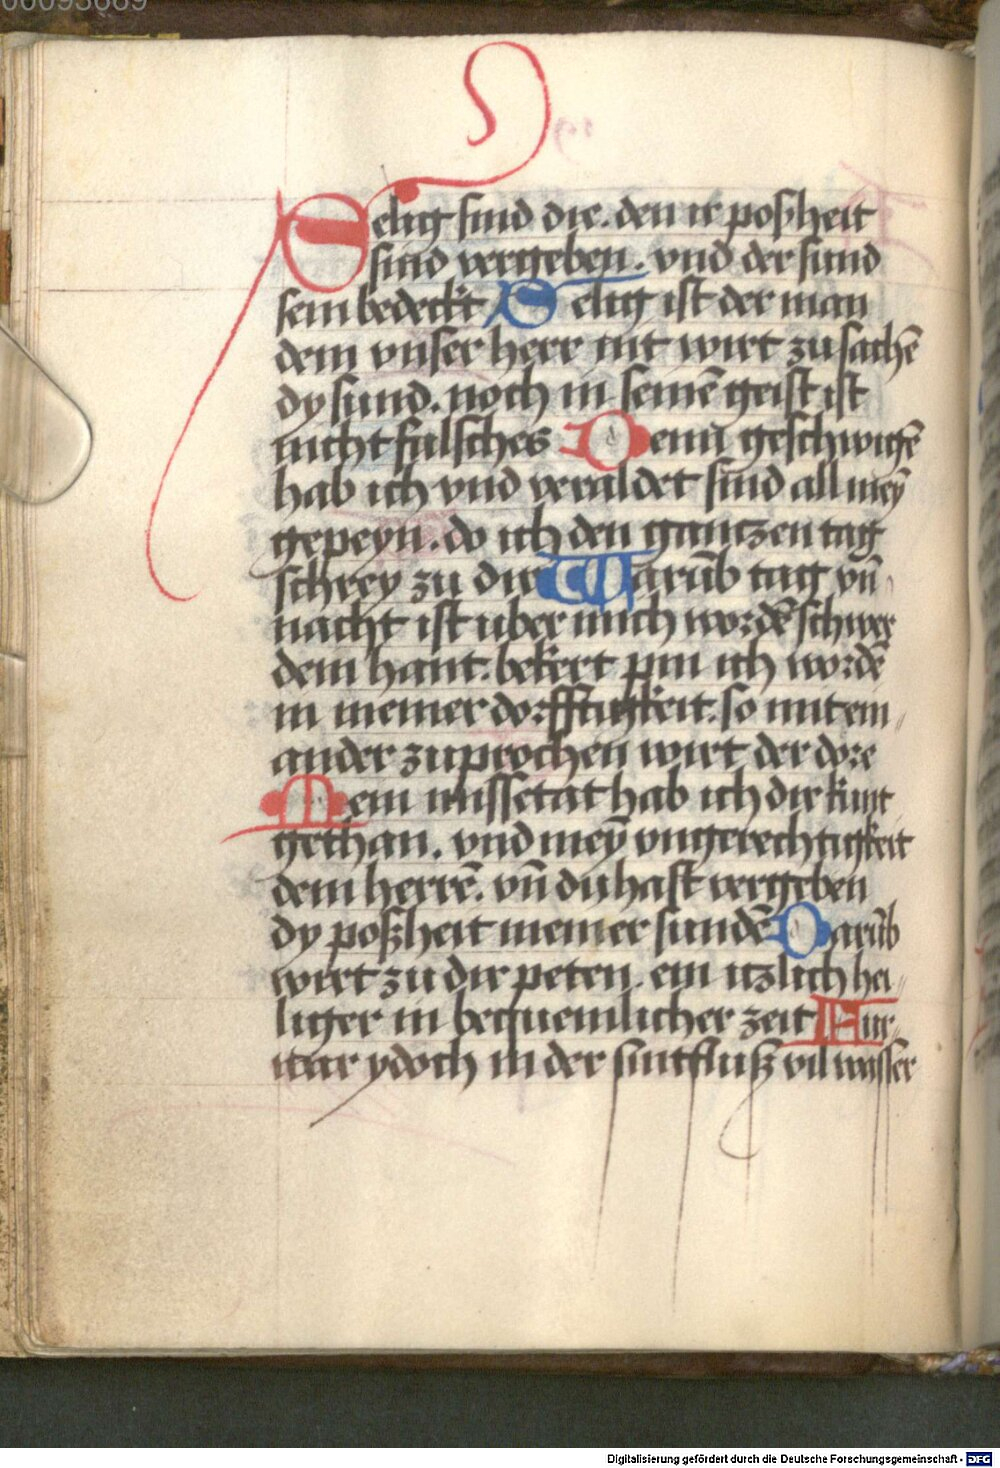 00093689
Selig sind die. den ir poßheit
sind vergeben. vnd der sund
sein bedeckt Selig ist der man
dem vnser herr nit wirt zu sachē
dy sund. noch in seinē geist ist
nicht falsches Denn geschwigē
hab ich vnd veraldet sind all meȳ
gepeyn. do ich den gantzen tag
schrey zu dir Warūb tag vn̄
nacht ist uber mich wordē schwer
dein hant. bekert pin ich wordē
in meiner dorfftigkeit. so mit ein
ander zuprochen wirt der dore
Mein missetat hab ich dir kunt
gethan. vnd meȳ vngerechtigkeit
dem herrē. vn̄ du hast vergeben
dy poßheit meiner sundē Darūb
wirt zu dir peten. ein itzlich hei
liger in bequemlicher zeit Fur
war ydoch in der sintfluß vil wasser
Digitalisierung gefördert durch die Deutsche Forschungsgemeinschaft - DFG